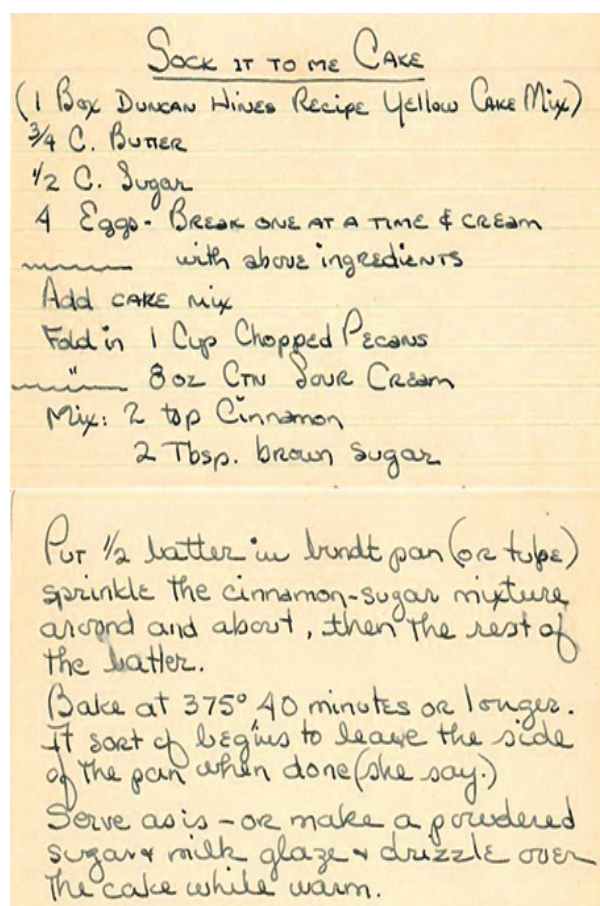 Sock it to me Cake
(1 Box Duncan Hines Recipe Yellow Cake Mix)
3/4 C. Butter
1/2 C. Sugar
4 Eggs - Break one at a time & cream
with above ingredients
Add cake mix
Fold in 1 Cup Chopped Pecans
" 8 oz Ctn Sour Cream
Mix: 2 tsp Cinnamon
2 Tbsp. brown sugar
Put 1/2 batter in bundt pan (or tube)
sprinkle the cinnamon-sugar mixture
around and about, then the rest of
the batter.
Bake at 375° 40 minutes or longer.
It sort of begins to leave the side
of the pan when done (she say.)
Serve as is - or make a powdered
sugar & milk glaze & drizzle over
the cake while warm.